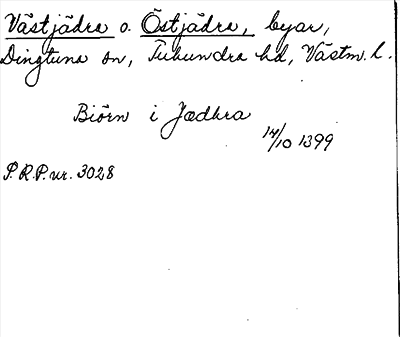 Västjädra o. Östjädra, byar,
Dingtuna sn, Tuhundra hd, Västm. l.
Biörn i Jædhra
14/10 1399
P.R.P. nr. 3028